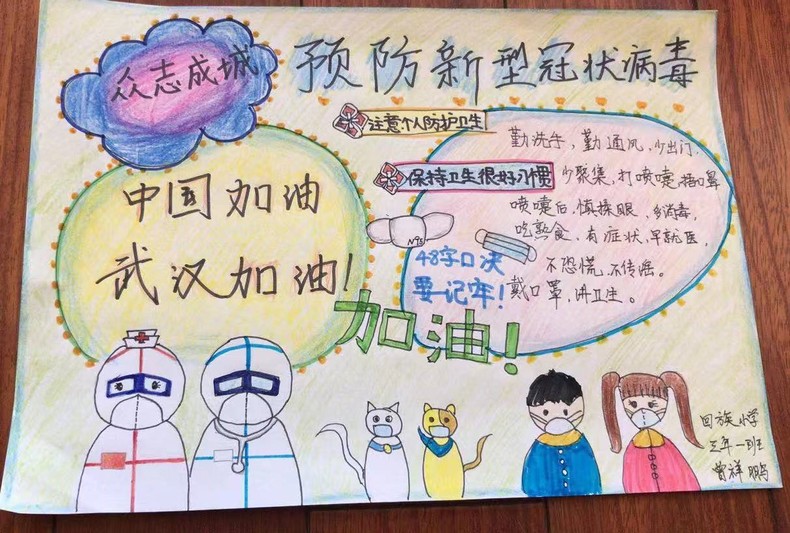 众志成城
预防新型冠状病毒
注意个人防护卫生
保持卫生很好习惯
勤洗手，勤通风，少出门，
少聚集，打喷嚏，捂口鼻
喷嚏后，慎揉眼，多消毒，
吃熟食，有症状，早就医，
不恐慌，不传谣。
戴口罩，讲卫生。
中国加油
武汉加油！
N95
48字口决
要记牢！
加油！
回族小学
三年一班
曾祥鹏